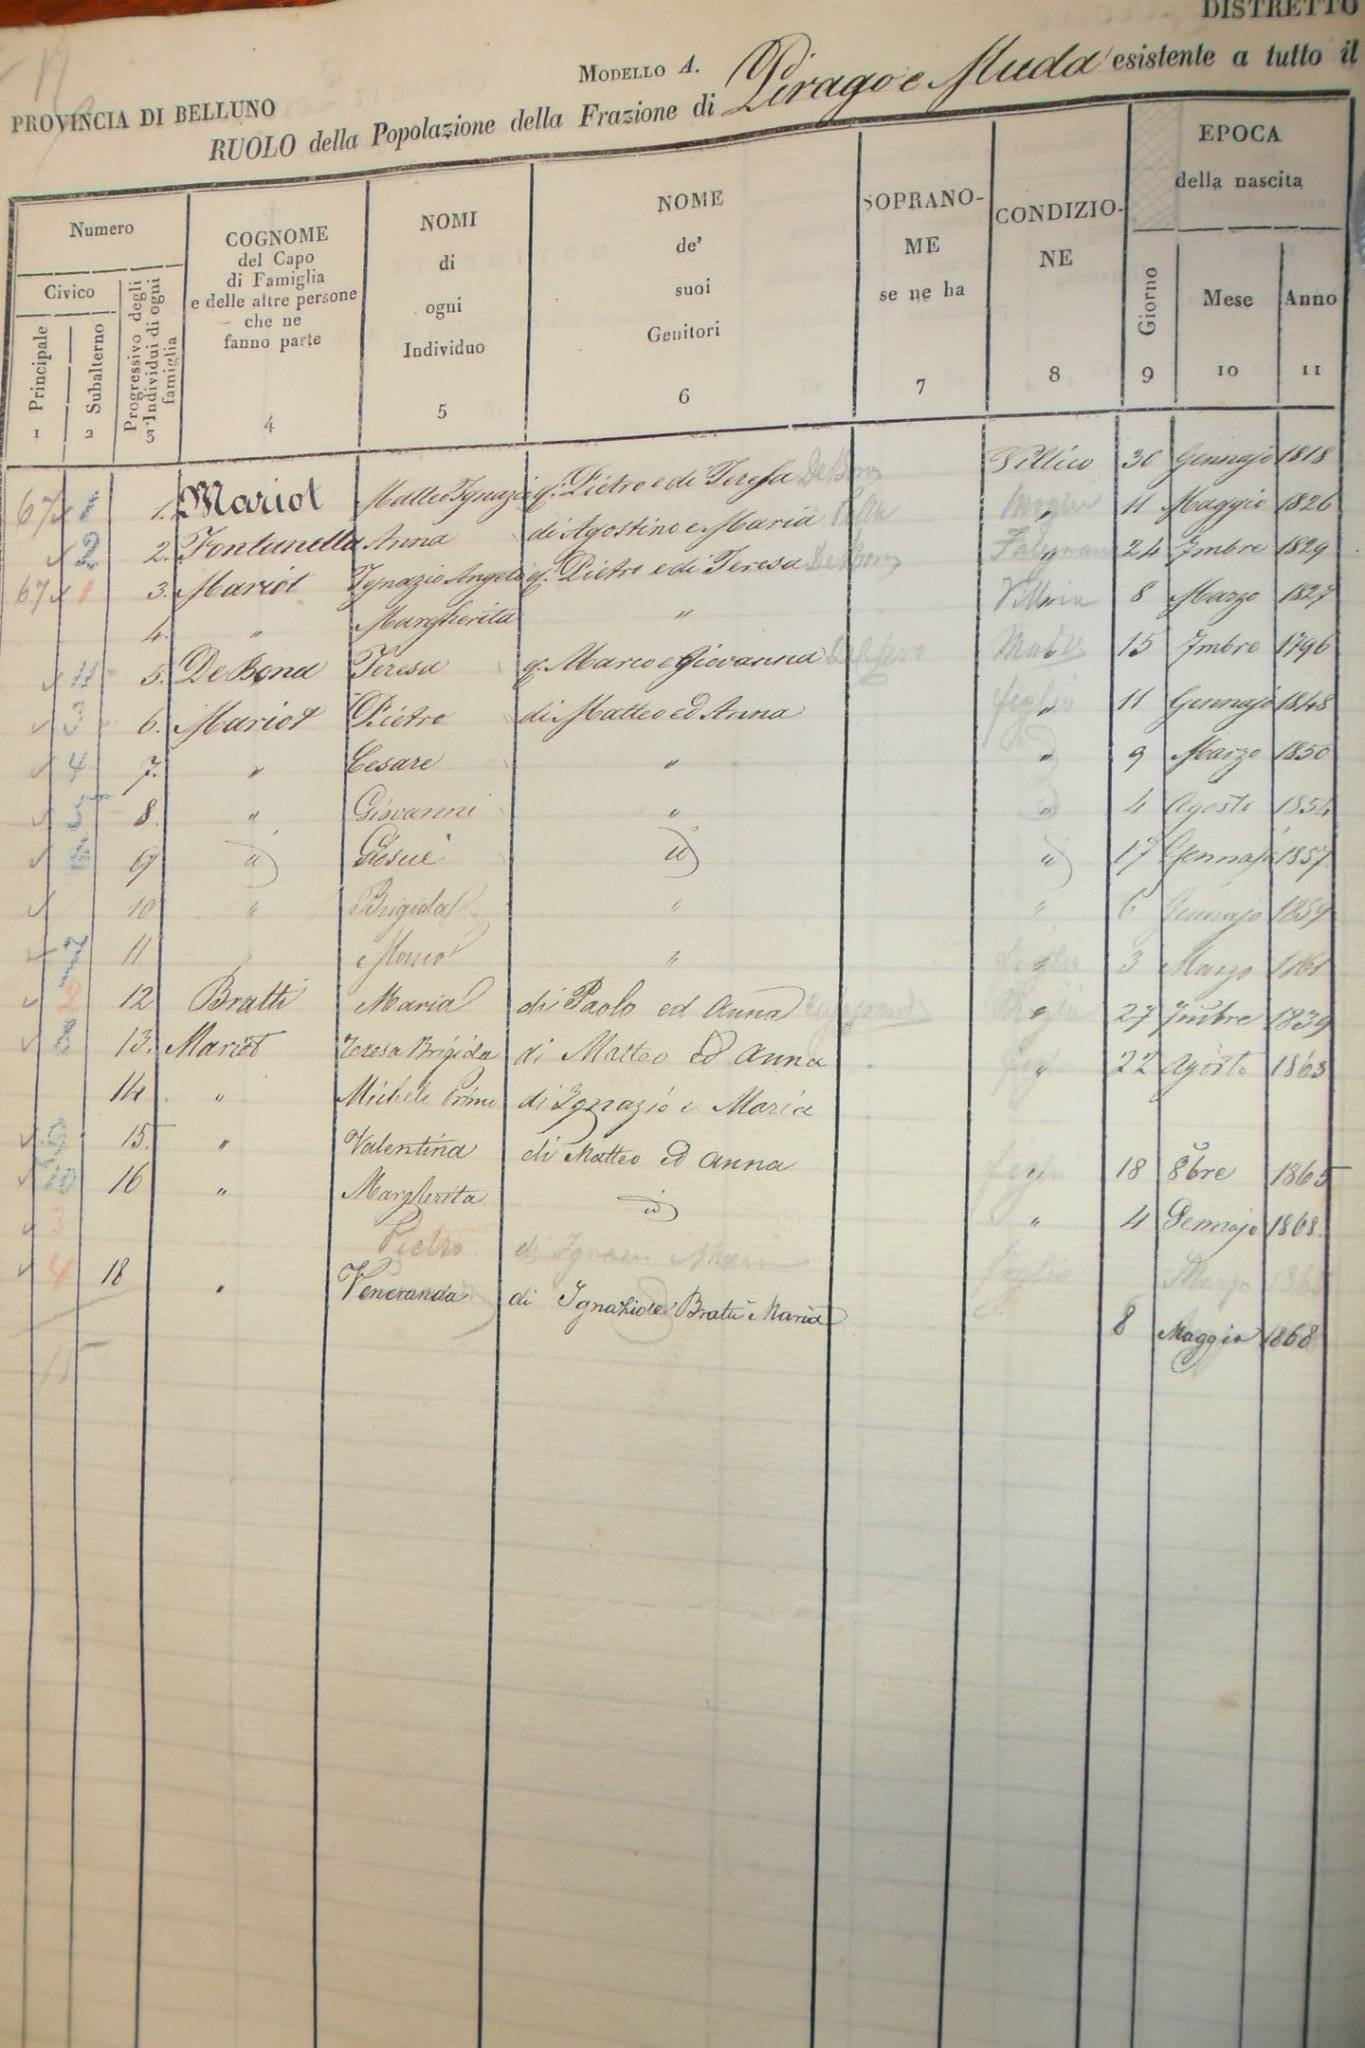 DISTRETTO
MODELLO A.
PROVINCIA DI BELLUNO
RUOLO della Popolazione della Frazione di Pirago e Muda esistente a tutto il
Numero
Civico
Principale
Subalterno
Progressivo degli Individui di ogni famiglia
COGNOME
del Capo
di Famiglia
e delle altre persone
che ne
fanno parte
NOMI
di
ogni
Individuo
NOME
de'
suoi
Genitori
SOPRANO-
ME
se ne ha
CONDIZIO-
NE
EPOCA
della nascita
Giorno
Mese
Anno
1 2 3 4 5 6 7 8 9 10 11
67 1 1. Mariot Matteo Ignazio q. Pietro e di Teresa De Bona Villico 30 Gennajo 1818
2 2. Fontanella Anna di Agostino e Maria " 11 Maggio 1826
67 1 3. Mariot Ignazio Angelo q. Pietro e di Teresa De Bona " 24 7mbre 1829
4. " Margherita " " 8 Marzo 1827
11 5. De Bona Teresa q. Marco e Giovanna Madre 15 7mbre 1796
3 6. Mariot Pietro di Matteo ed Anna figlio " 11 Gennajo 1848
4 7. " Cesare " " 9 Marzo 1850
5 8. " Giovanni " " 4 Agosto 1854
9 id Giosuè id id 17 Gennajo 1857
10 " Brigida " " 6 Gennajo 1859
7 11 " Marco " 3 Marzo 1861
2 12 Bratti Maria di Paolo ed Anna " 27 7mbre 1839
8 13. Mariot Teresa Brigida di Matteo ed Anna " 22 Agosto 1863
14 " Michele Primo di Ignazio e Maria
9 15. " Valentina di Matteo ed Anna 18 8bre 1865
10 16 " Margherita id " 4 Gennajo 1868.
3 Pietro di Ignazio Maria figlio Marzo
4 18 " Veneranda di Ignazio e Bratti Maria 8 Maggio 1868